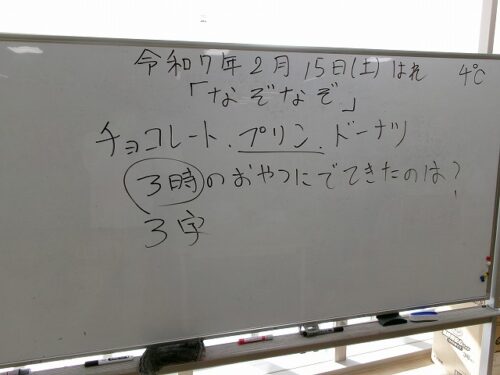 令和7年2月15日(土)はれ 4℃
「なぞなぞ」
チョコレート.プリン.ドーナツ
3時のおやつにでてきたのは?
3字